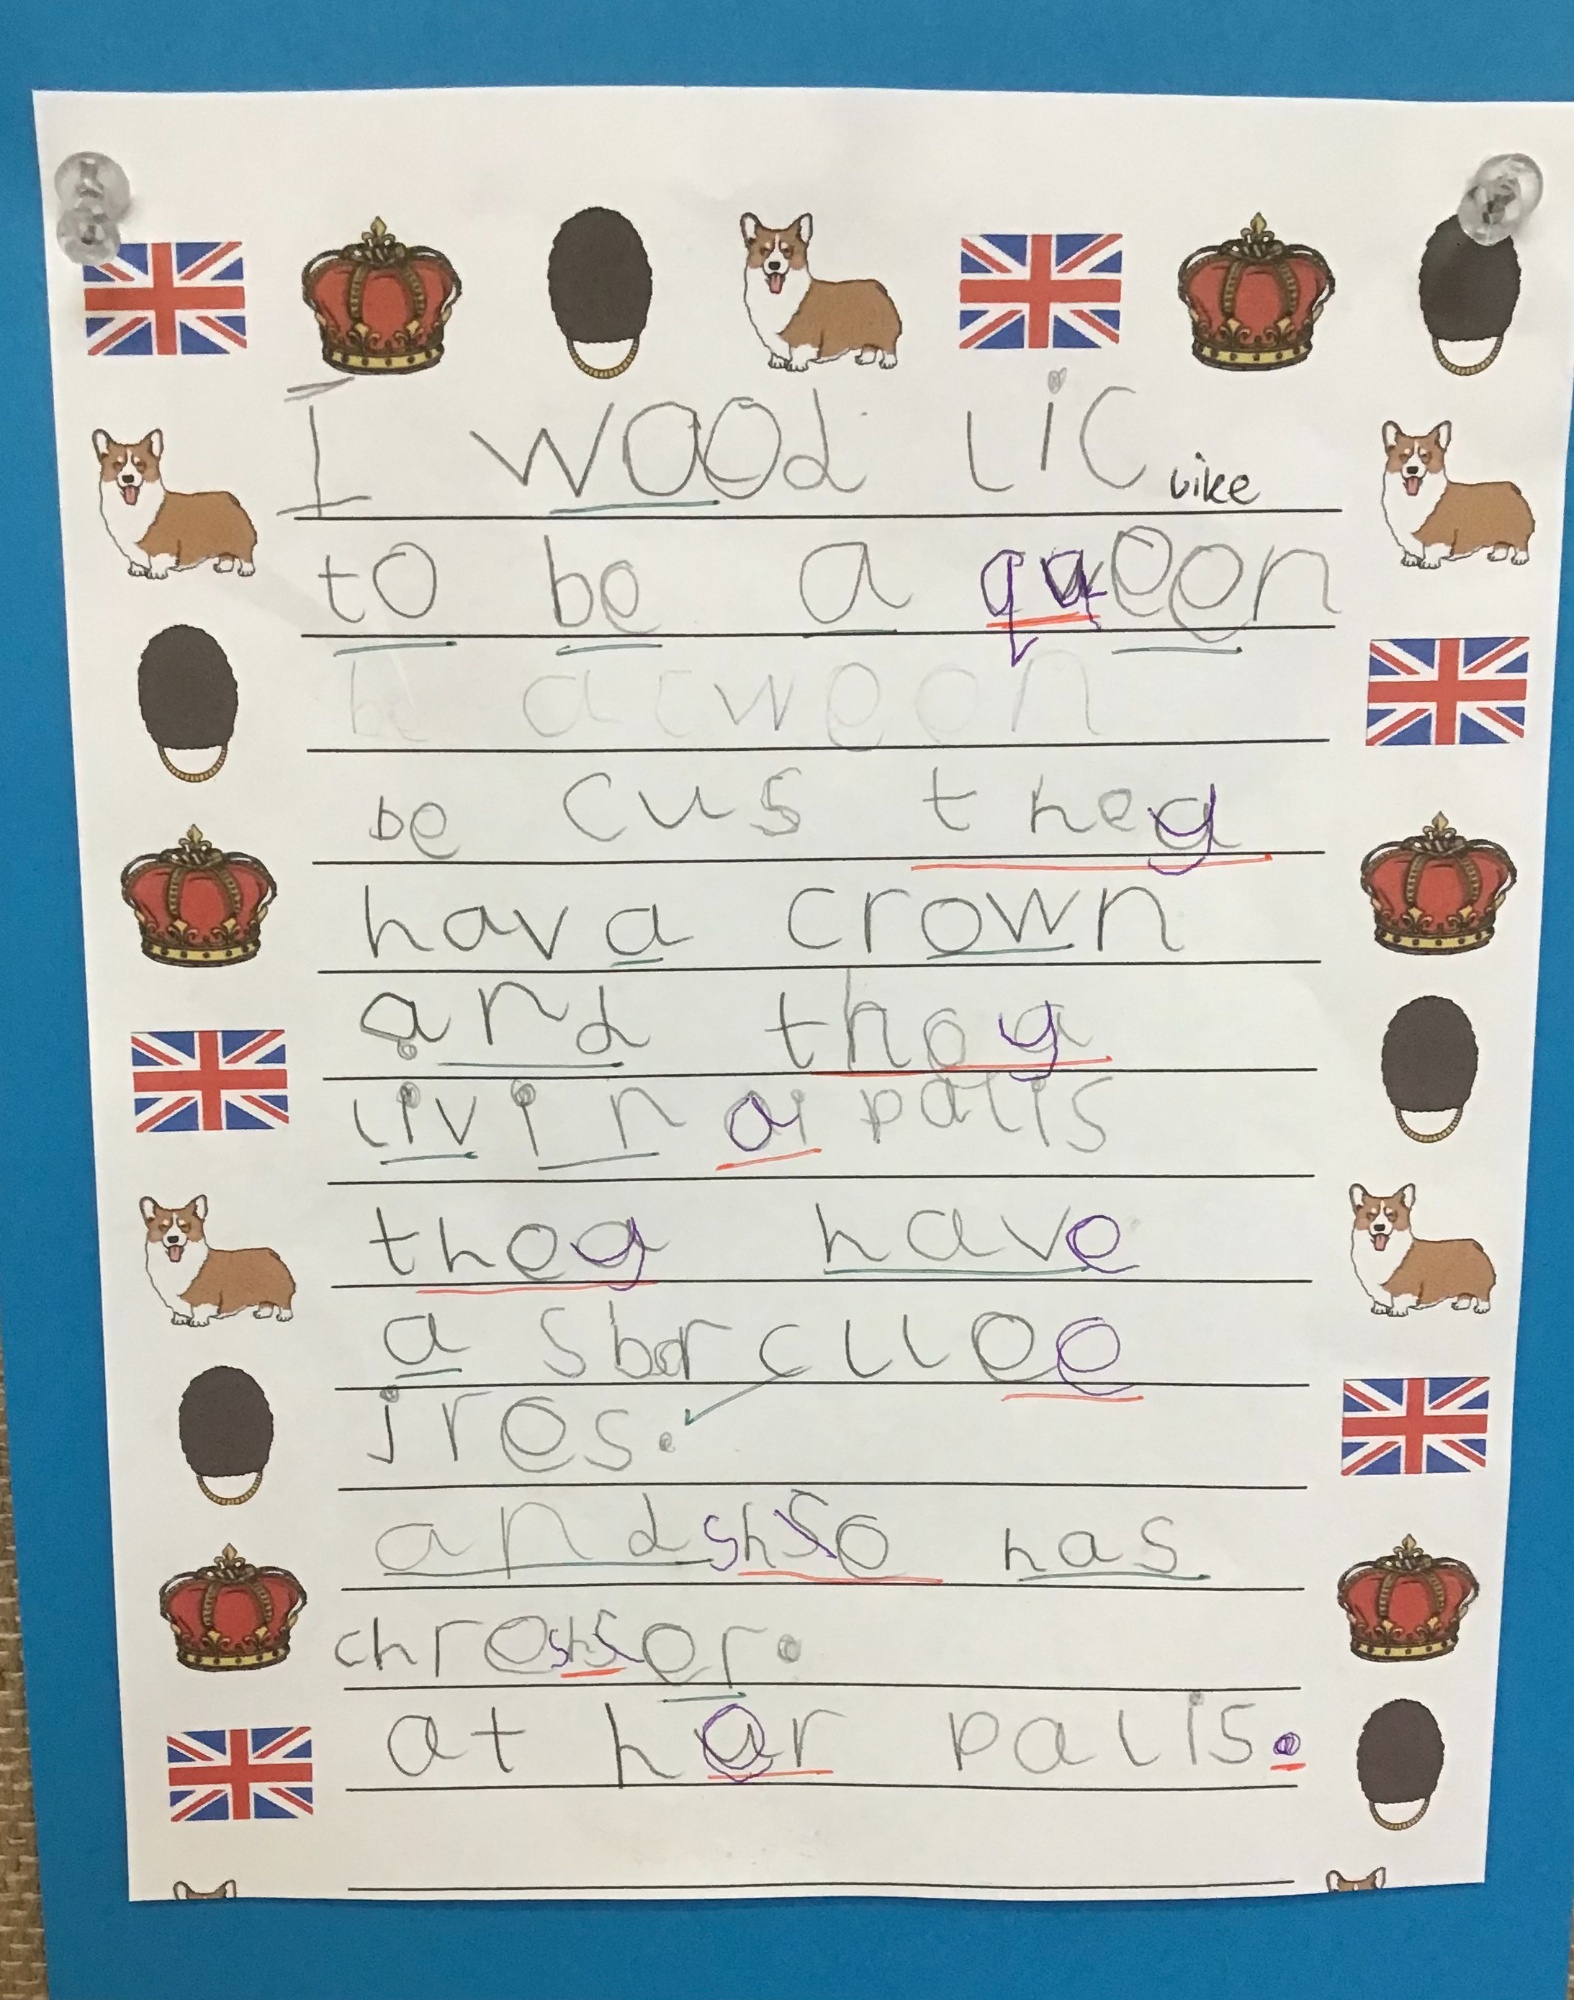 I wood lic like
to be a queen
be cus they
hava crown
and they
liv in a palis
they have
a sbarcllee
jres.
and she has
chresher.
at har palis.